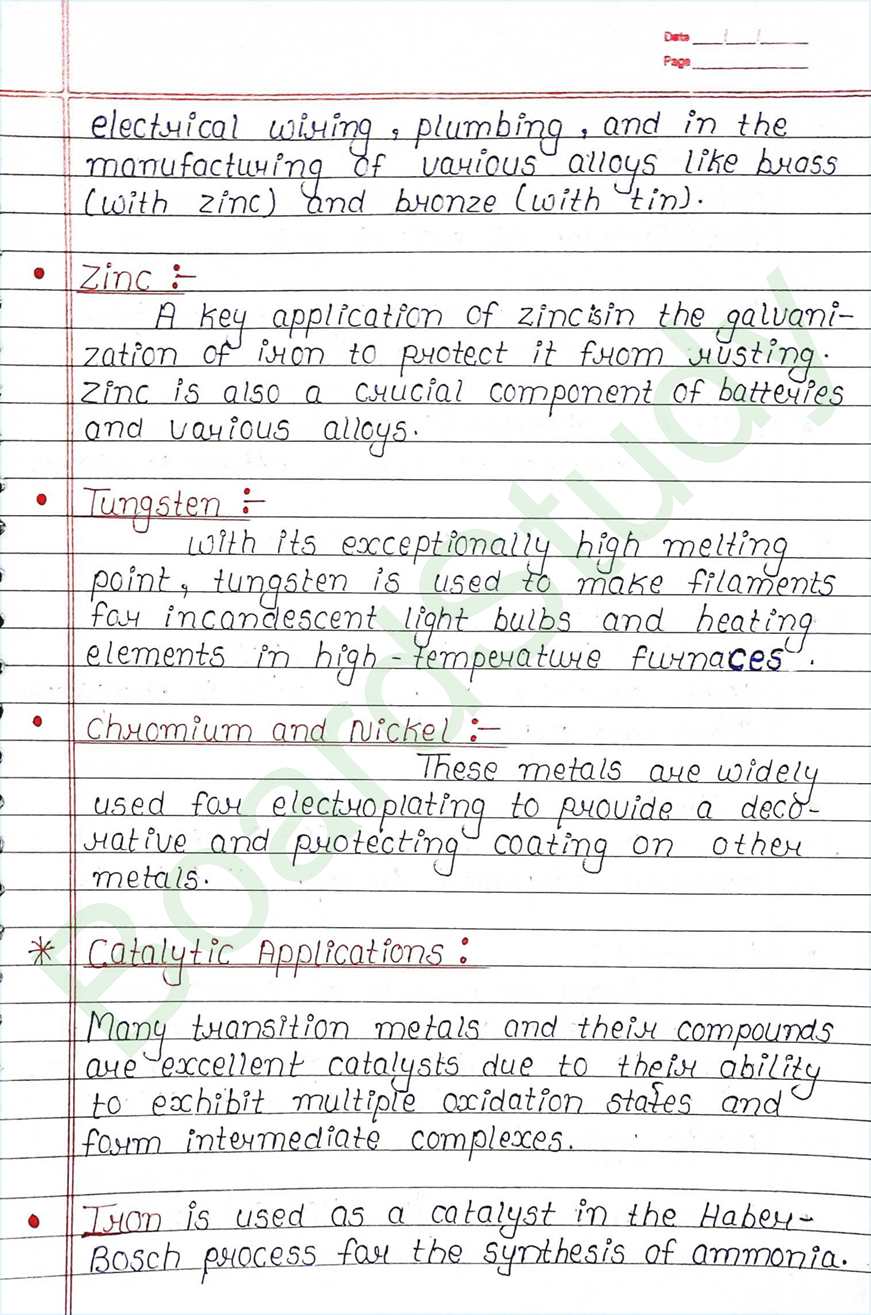 Date
Page
electrical wiring, plumbing, and in the
manufacturing of various alloys like brass
(with zinc) and bronze (with tin).
Zinc :-
A key application of zinc is in the galvani-
zation of iron to protect it from rusting.
Zinc is also a crucial component of batteries
and various alloys.
Tungsten :-
With its exceptionally high melting
point, tungsten is used to make filaments
for incandescent light bulbs and heating
elements in high-temperature furnaces.
Chromium and Nickel :-
These metals are widely
used for electroplating to provide a deco-
rative and protecting coating on other
metals.
* Catalytic Applications :
Many transition metals and their compounds
are excellent catalysts due to their ability
to exhibit multiple oxidation states and
form intermediate complexes.
Iron is used as a catalyst in the Haber-
Bosch process for the synthesis of ammonia.
BoardStudy